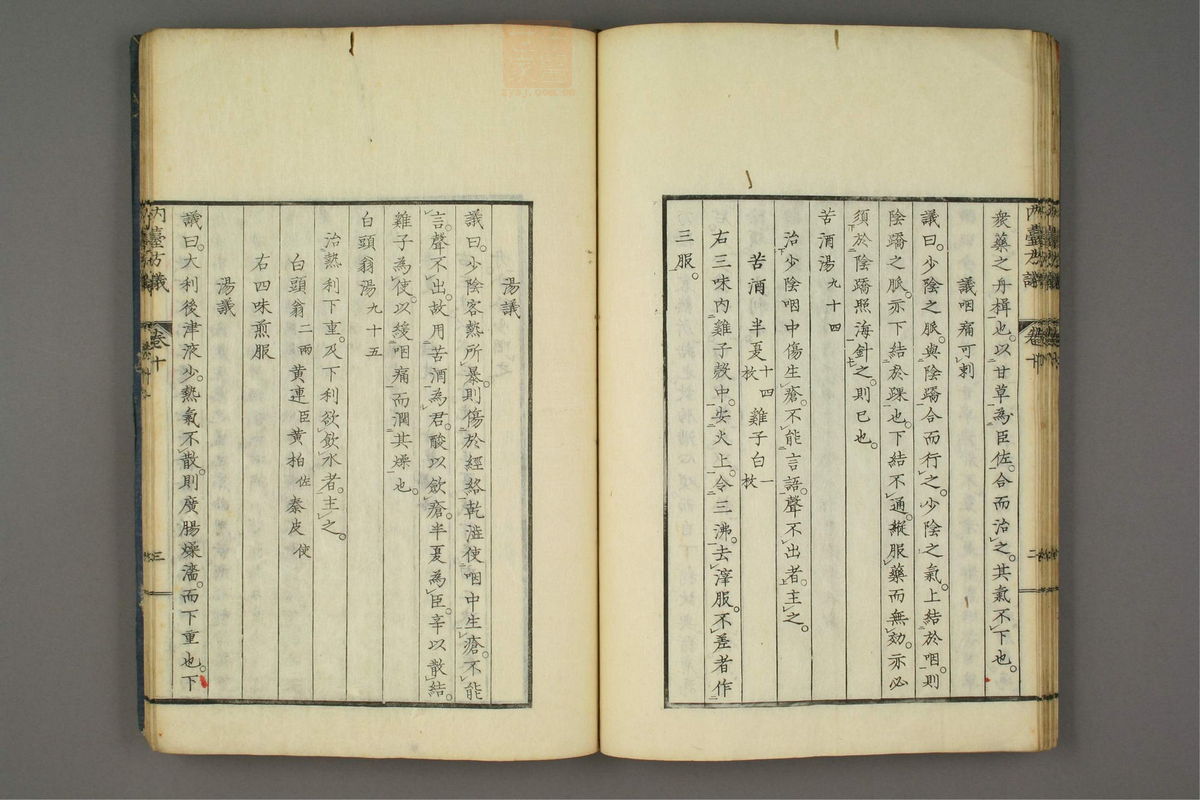 衆藥之舟楫也。以甘草為臣佐。合而治之。其氣不下也。
議咽痛可刺
議曰。少陰之脈。與陰蹻合而行之。少陰之氣。上結於咽。則
陰蹻之脈。亦下結於踝也。下結不通。縱服藥而無効。亦必
須於陰蹻照海針之。則已也。
苦酒湯九十四
治少陰咽中傷生瘡。不能言語。聲不出者。主之。
苦酒 半夏十四枚 雞子白一枚
右三味内雞子殼中。安火上。令三沸。去滓服。不差者作
三服。
湯議
議曰。少陰客熱所暴。則傷於經絡乾澁使咽中生瘡。不能
言。聲不出。故用苦酒為君。酸以斂瘡。半夏為臣。辛以散結。
雞子為使。以緩咽痛而潤其燥也。
白頭翁湯九十五
治熱利下重。及下利欲飲水者。主之。
白頭翁二兩 黄連臣 黄柏佐 秦皮使
右四味煎服
湯議
議曰。大利後津液少。熱氣不散。則廣腸燥濇。而下重也。下
内臺方議
卷十
三